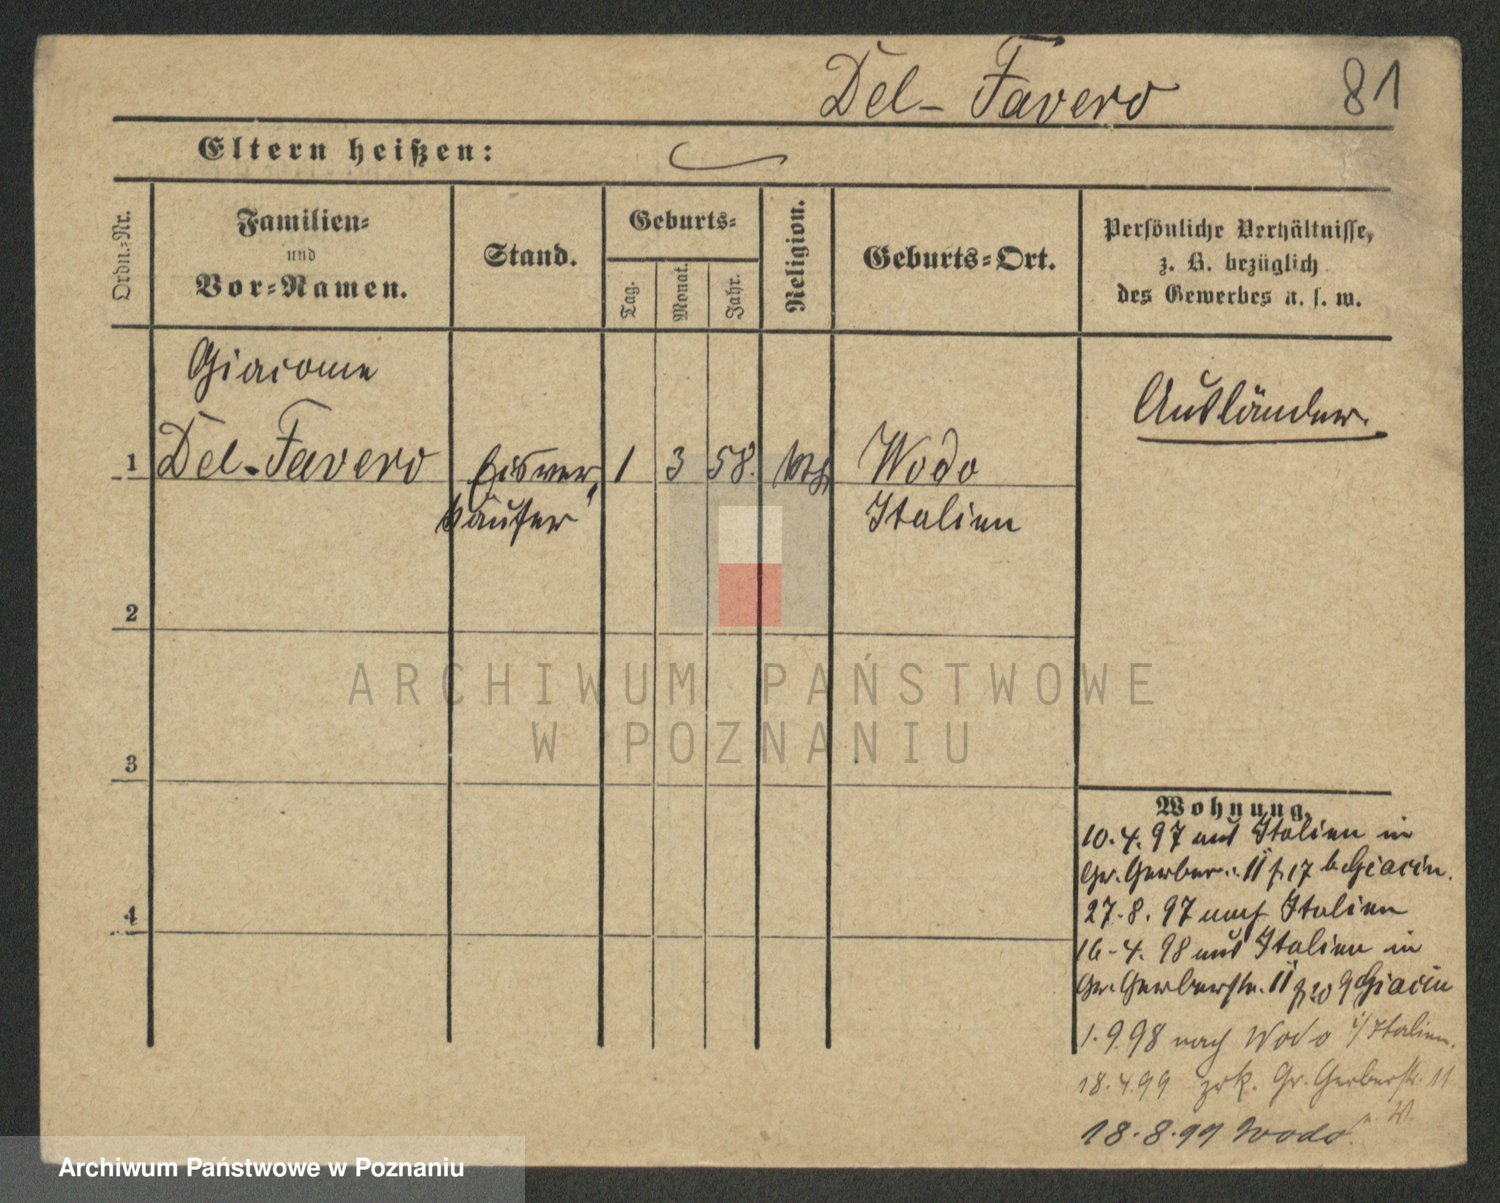 Del-Favero 81
Eltern heißen:
Ordn.-Nr.
Familien-
und
Vor-Namen.
Stand.
Geburts-
Tag.
Monat.
Jahr.
Religion.
Geburts-Ort.
Persönliche Verhältnisse,
z. B. bezüglich
des Gewerbes u. s. w.
Giacome
Ausländer.
1 Del-Favero Eisver- 1 3 58. kth. Wodo
käufer Italien
2
3
4
Wohnung.
10.4.97 aus Italien in
Gr. Gerber 11 17 b Giacin.
27.8.97 nach Italien
16-4.98 aus Italien in
Gr. Gerberstr. 11 Giacin
1.9.98 nach Wodo i/Italien.
18.4.99 zrk. Gr. Gerberstr. 11
18.8.99 Wodo.
ARCHIWUM PAŃSTWOWE
W POZNANIU
Archiwum Państwowe w Poznaniu